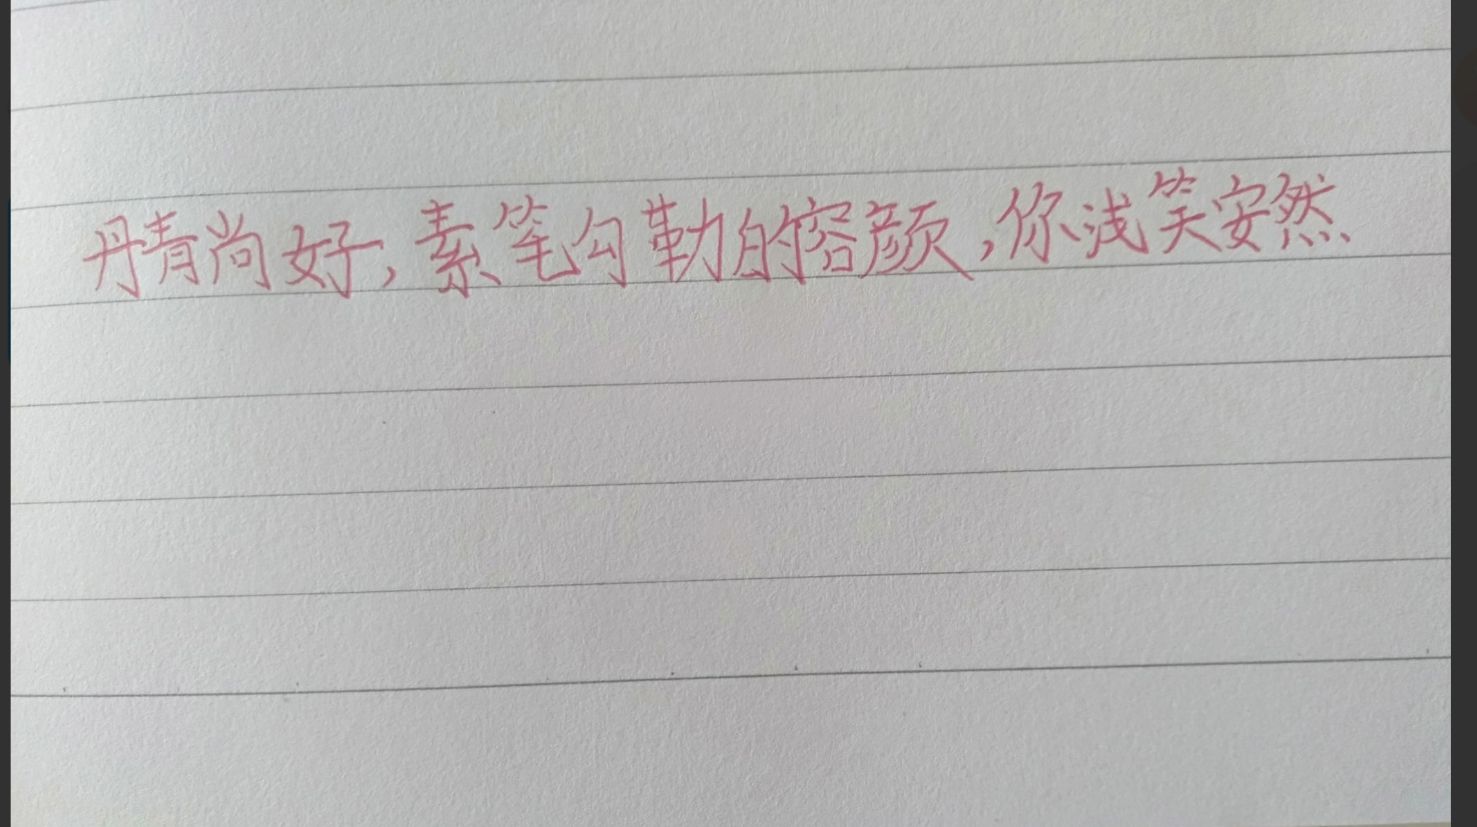 丹青尚好,素笔勾勒的容颜,你浅笑安然、